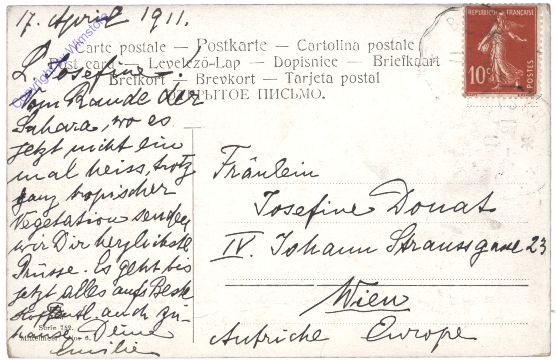 17. April 1911.
REPUBLIQUE FRANÇAISE
10c
POSTES
Carte postale — Postkarte — Cartolina postale
Post card — Levelező-Lap — Dopisnice — Briefkaart
Brefkort — Brevkort — Tarjeta postal
ОТКРЫТОЕ ПИСЬМО.
L. Josefine!
Vom Rande der
Sahara, wo es
jetzt nicht ein
mal heiss, trotz
ganz tropischer
Vegetation senden
wir Dir herzlichste
Grüsse. Es geht bis
jetzt alles aufs Beste
hoffentl. auch zu-
hause. Deine
Emilie
Fräulein
Josefine Donat
IV. Johann Straussgasse 23
Wien
Autriche Europe
Serie 752.